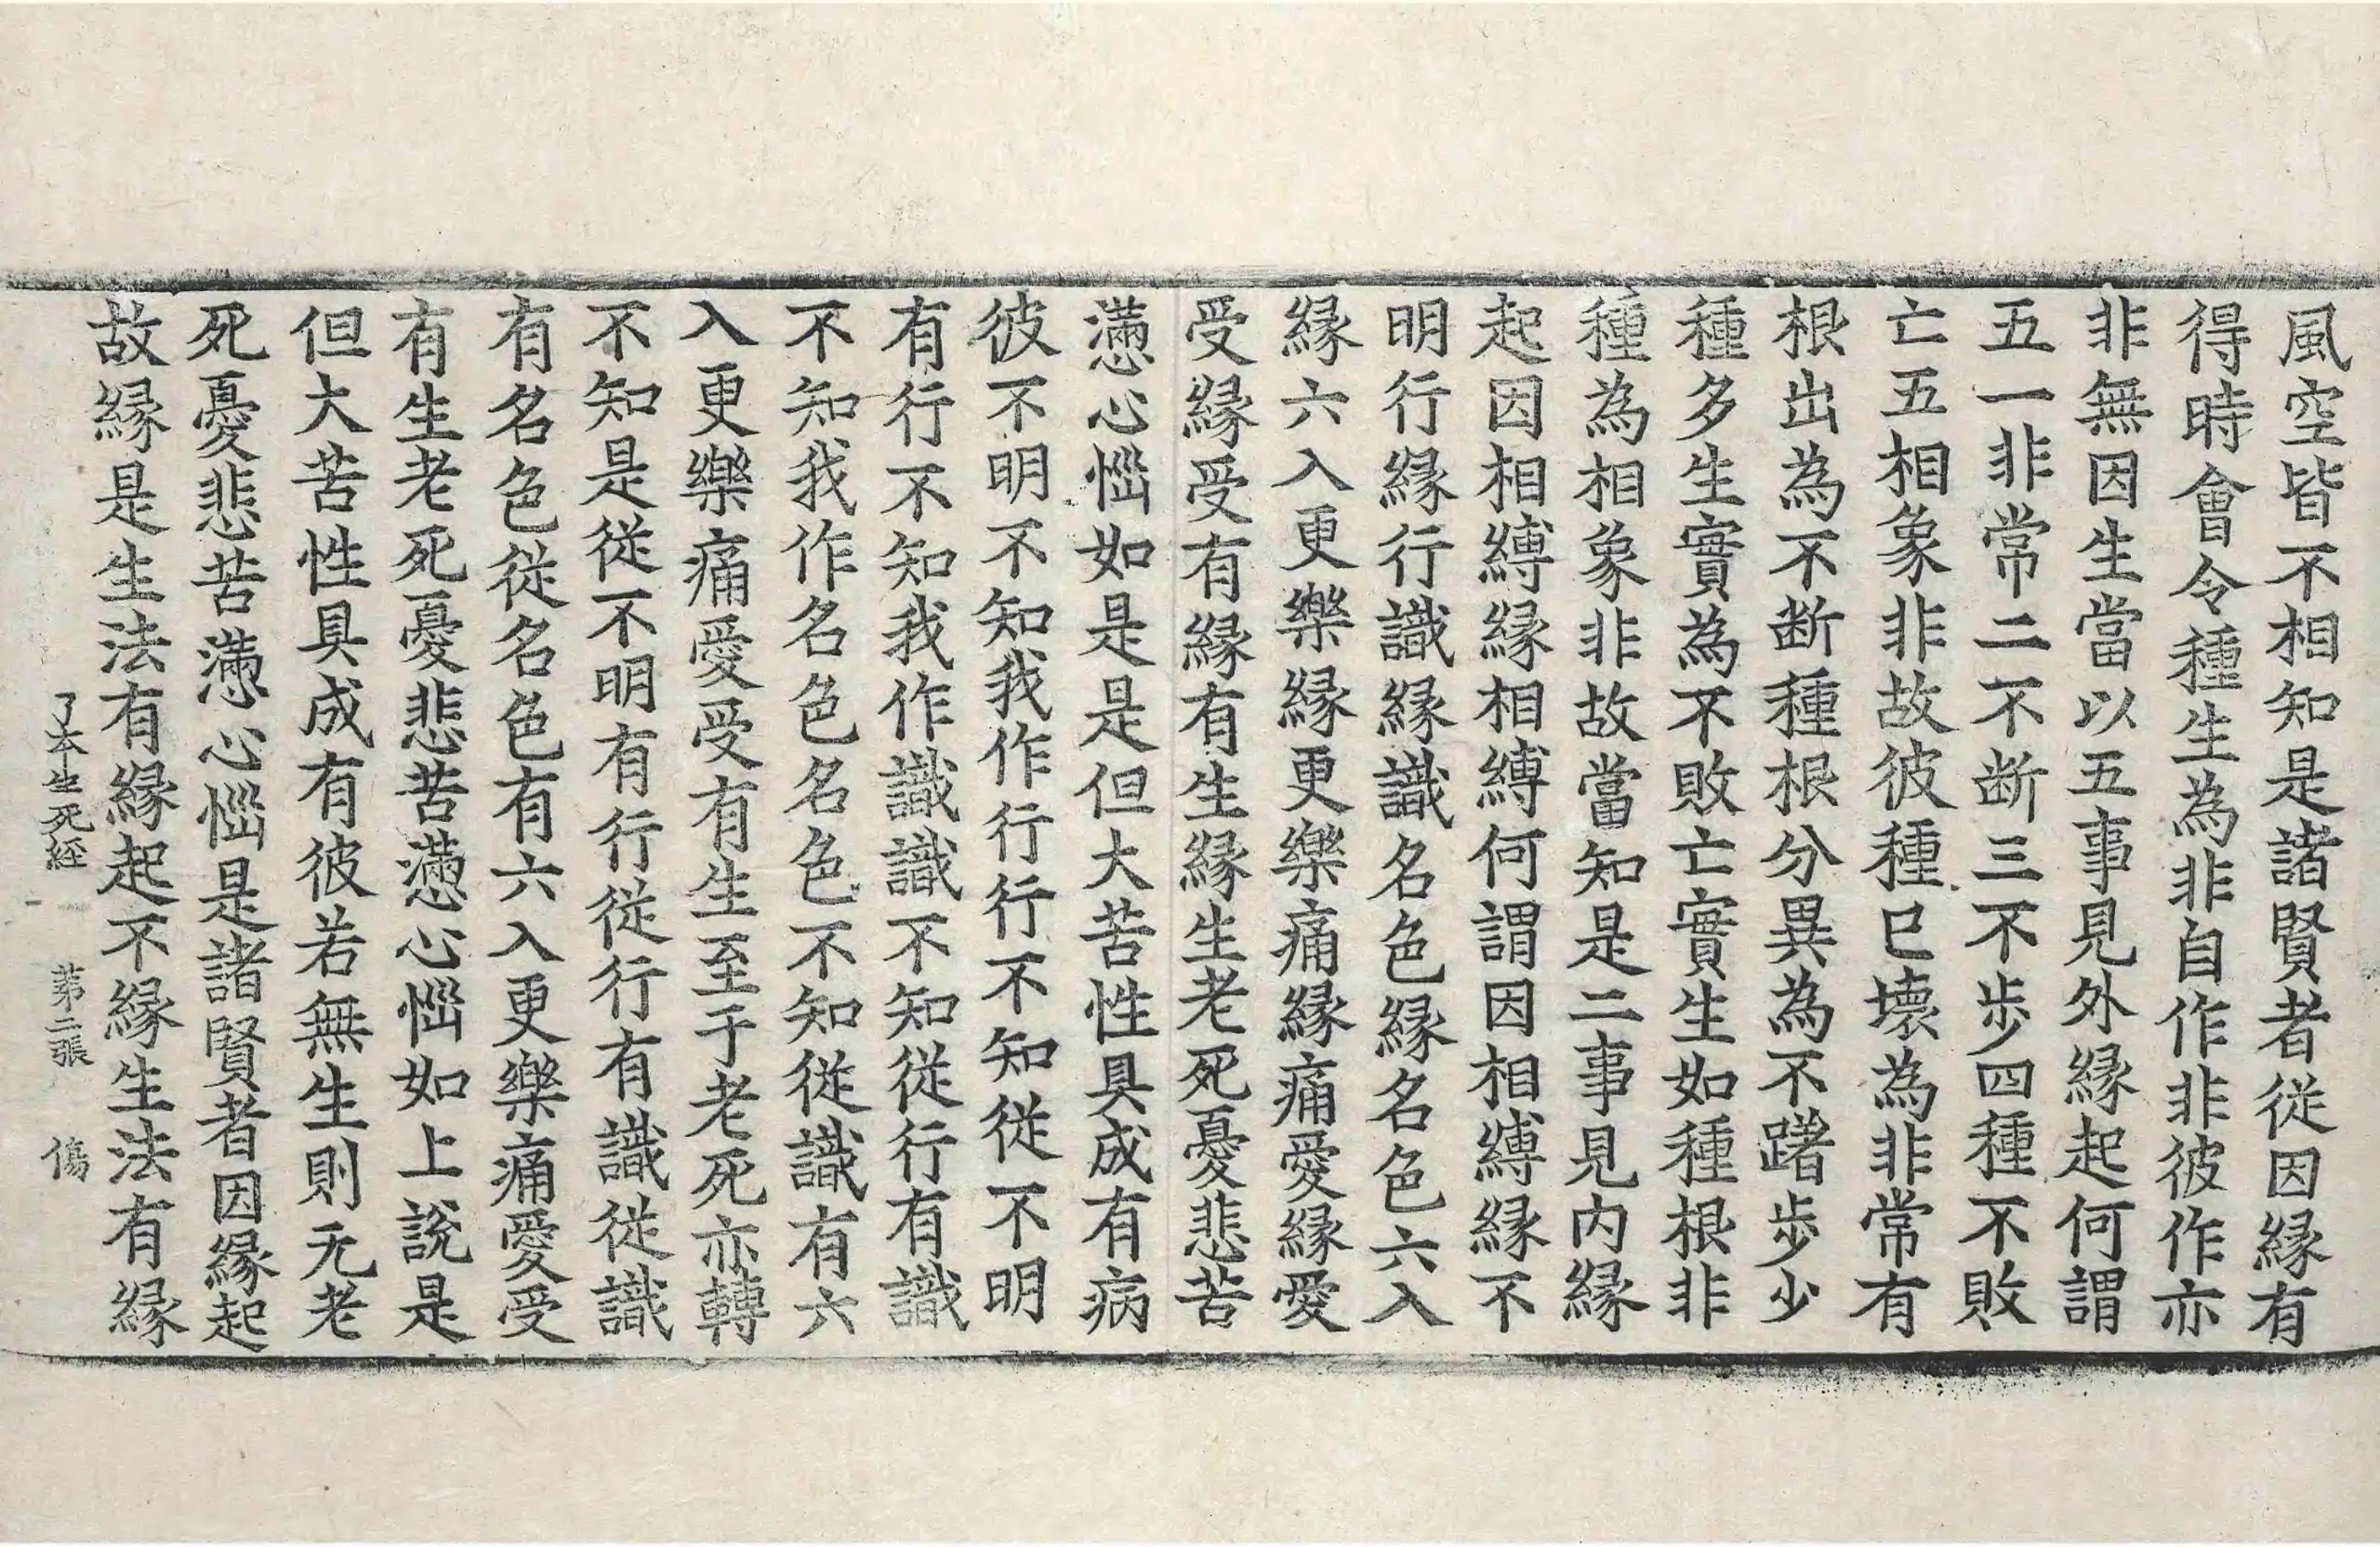 風空皆不相知是諸賢者從因緣有
得時會令種生為非自作非彼作亦
非無因生當以五事見外緣起何謂
五一非常二不断三不步四種不敗
亡五相象非故彼種已壞為非常有
根出為不断種根分異為不躇步少
種多生實為不敗亡實生如種根非
種為相象非故當知是二事見内緣
起因相縛緣相縛何謂因相縛緣不
明行緣行識緣識名色緣名色六入
緣六入更樂緣更樂痛緣痛愛緣愛
受緣受有緣有生緣生老死憂悲苦
懣心惱如是是但大苦性具成有病
彼不明不知我作行行不知從不明
有行不知我作識識不知從行有識
不知我作名色名色不知從識有六
入更樂痛愛受有生至于老死亦轉
不知是從不明有行從行有識從識
有名色從名色有六入更樂痛愛受
有生老死憂悲苦懣心惱如上說是
但大苦性具成有彼若無生則无老
死憂悲苦懣心惱是諸賢者因緣起
故緣是生法有緣起不緣生法有緣
了本生死經 第二張 傷